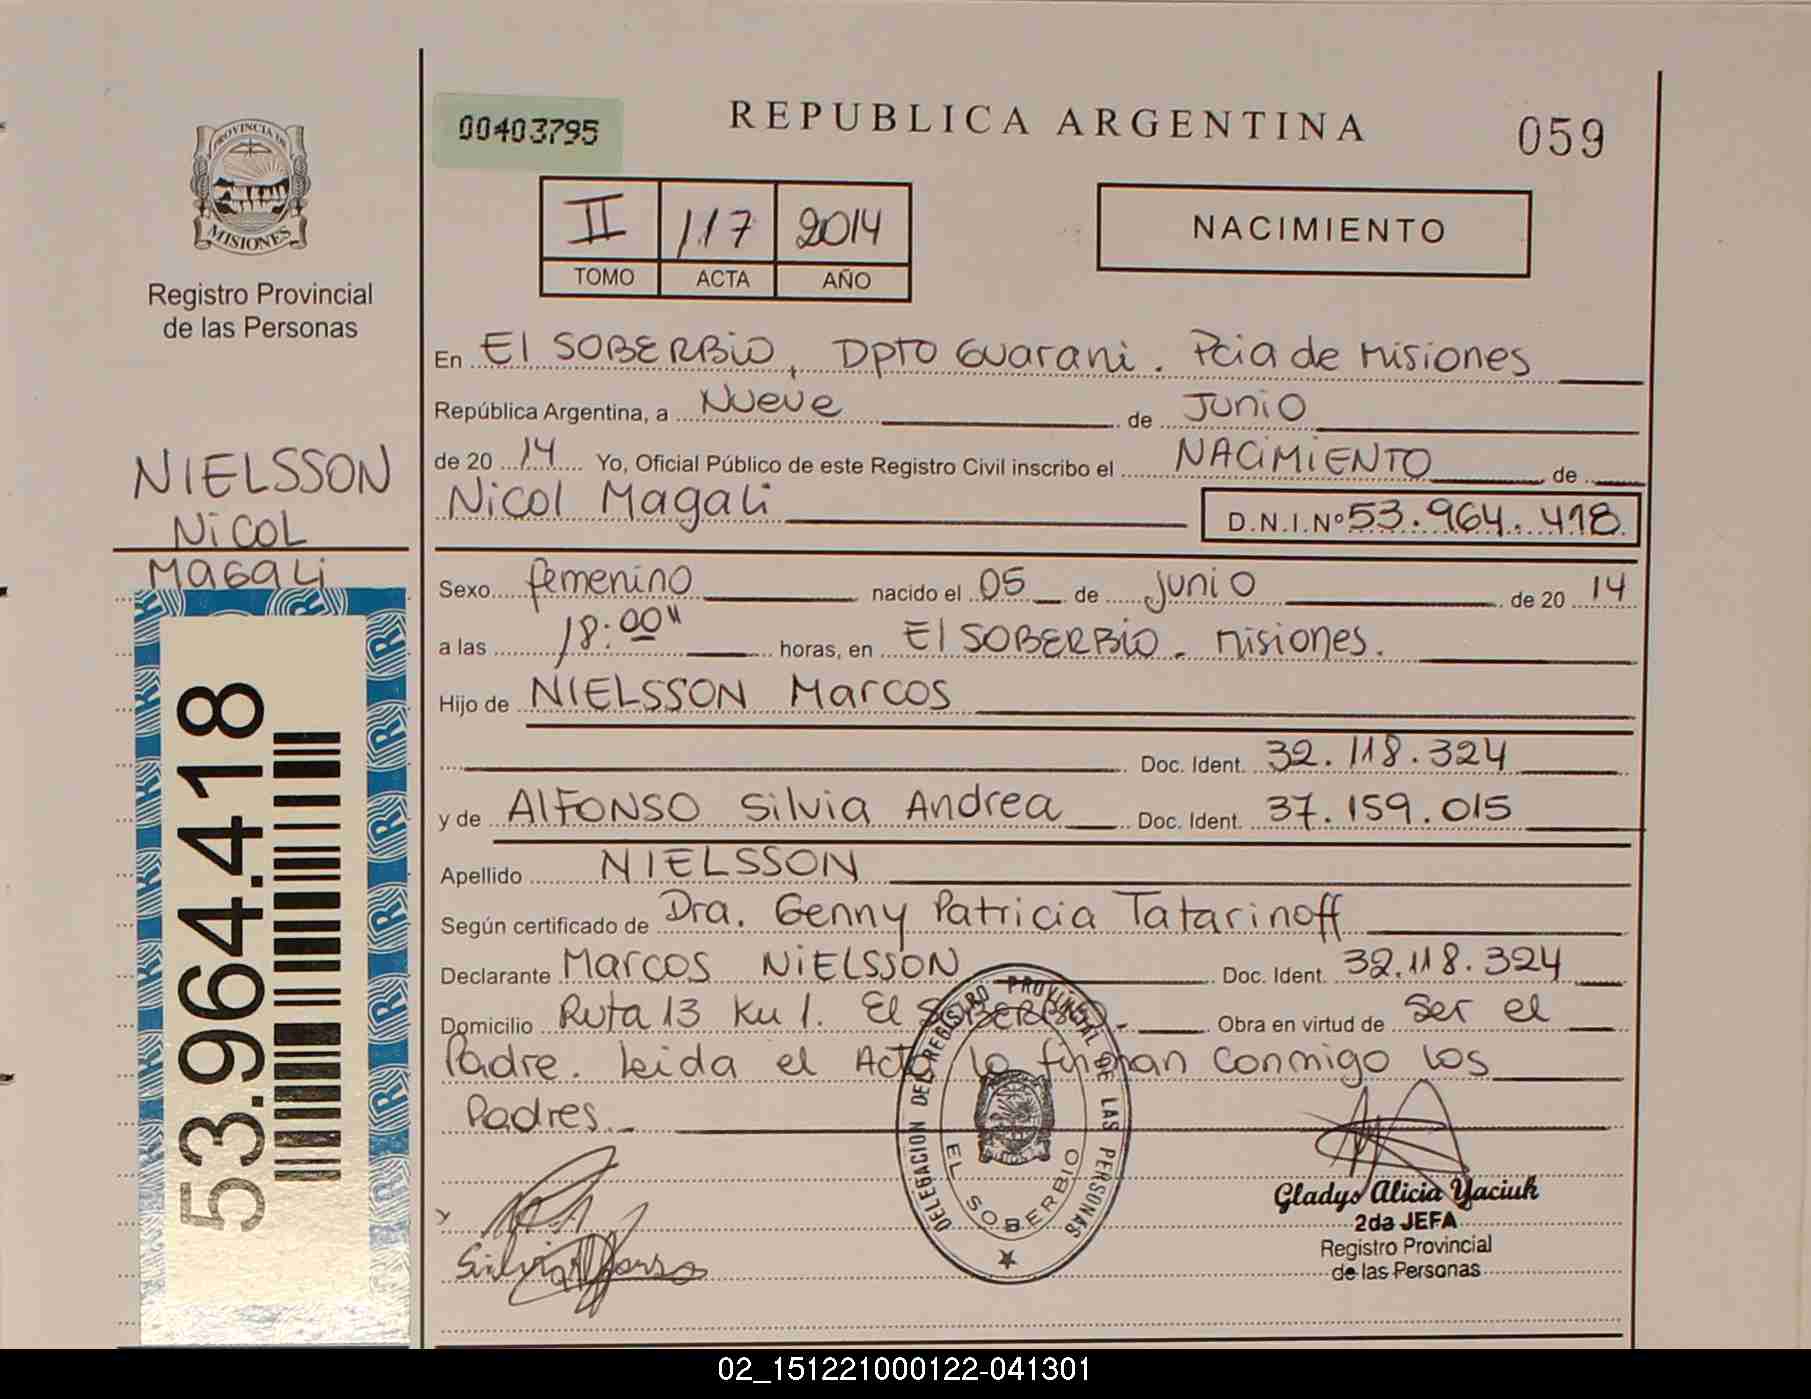 PROVINCIA DE
MISIONES
Registro Provincial
de las Personas
NIELSSON
NICOL
MAGALI
53.964.418
00403795
REPUBLICA ARGENTINA
059
II 117 2014
TOMO ACTA AÑO
NACIMIENTO
En El SOBERBIO, DPTO GUARANI. Pcia de Misiones
República Argentina, a Nueve de Junio
de 20 14 Yo, Oficial Público de este Registro Civil inscribo el NACIMIENTO de
Nicol Magali D.N.I.Nº 53.964.418
Sexo femenino nacido el 05 de Junio de 20 14
a las 18:00" horas, en El SOBERBIO. Misiones.
Hijo de NIELSSON Marcos
Doc. Ident. 32.118.324
y de AlFONSO Silvia Andrea Doc. Ident. 37.159.015
Apellido NIELSSON
Según certificado de Dra. Genny Patricia Tatarinoff
Declarante Marcos NIELSSON Doc. Ident. 32.118.324
Domicilio Ruta 13 Km 1. El SOBERBIO. Obra en virtud de Ser el
Padre. Leida el Acta lo firman conmigo los
Padres.
DELEGACION DEL REGISTRO PROVINCIAL DE LAS PERSONAS
EL SOBERBIO
Gladys Alicia Yaciuk
2da JEFA
Registro Provincial
de las Personas
02_151221000122-041301